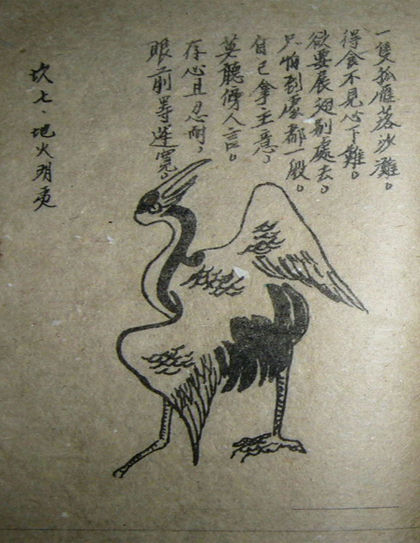 一隻孤雁落沙灘。
得食不見心下難。
欲要展翅别處去。
只怕到處都一般。
自己拿主意。
莫聽傍人言。
存心且忍耐，
眼前寬。
坎七·地火明夷